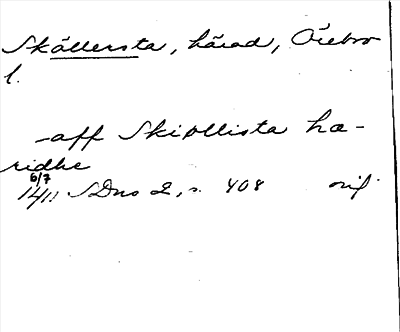 Skällersta, härad, Örebro
l.
-aff Skiøllista hæ-
ridhe
6/7
1411 SDns 2, s. 408 orig.